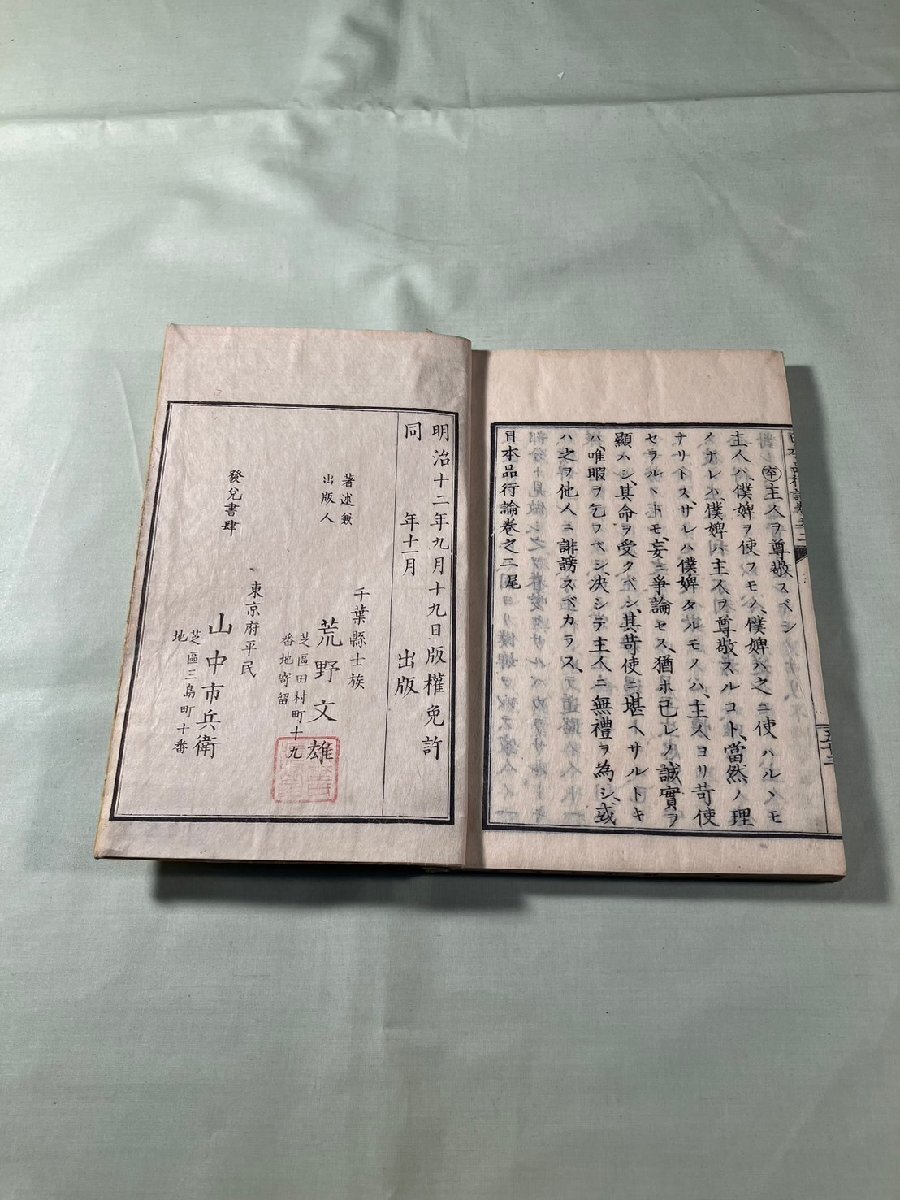 主人ヲ尊敬スベシ
主人ハ、僕婢ヲ使フモノ、僕婢ハ之ニ使ハルヽモ
ノナレハ、僕婢ハ主人ヲ尊敬スルコト當然ノ理
ナリトス、サレハ僕婢タルモノハ、主人ヨリ苛使
セラルヽトモ、妄ニ爭論セス、猶ホ已レノ誠實ヲ
顯ハシ、其命ヲ受クベシ、其苛使ニ堪ヘサルトキ
ハ、唯暇ヲ乞フベシ、决シテ主人ニ無禮ヲ為シ、或
ハ之ヲ他人ニ誹謗スベカラス、
日本品行論卷之二尾
五十三
明治十二年九月十九日版權免許
同年十一月出版
著述兼
出版人
千葉縣士族
荒野文雄
芝區田村町十九
番地寄留
東京府平民
發兌書肆
山中市兵衛
芝區三島町十番
地